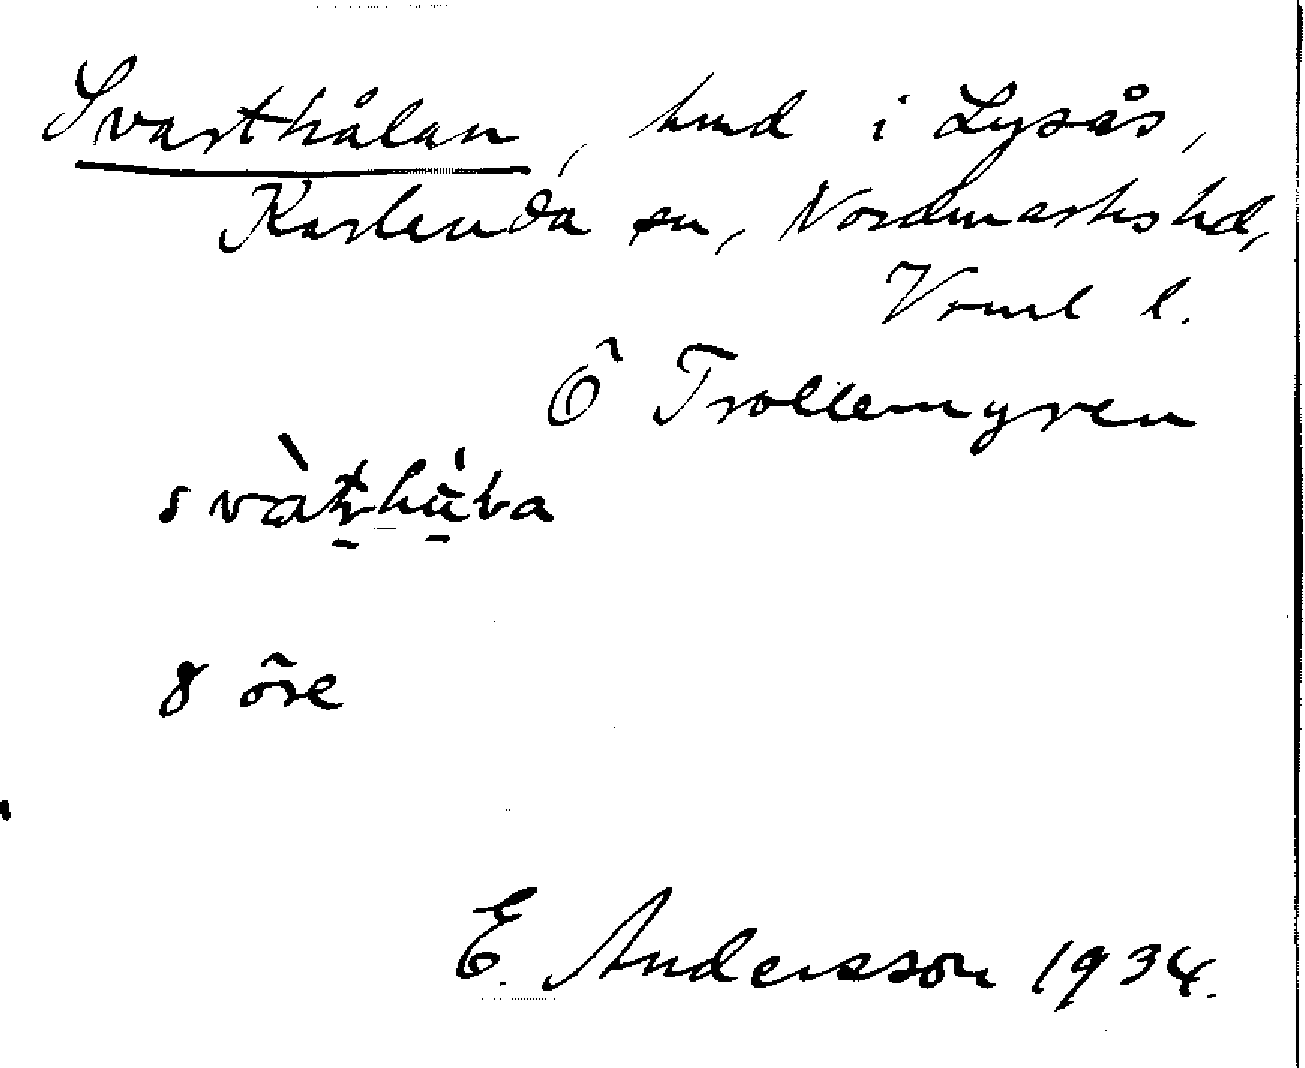 Svarthålan, hmd i Lysås,
Karlanda sn, Nordmarks hd,
Verml l.
Ö Trollemyren
8 öre
E. Andersson 1934.